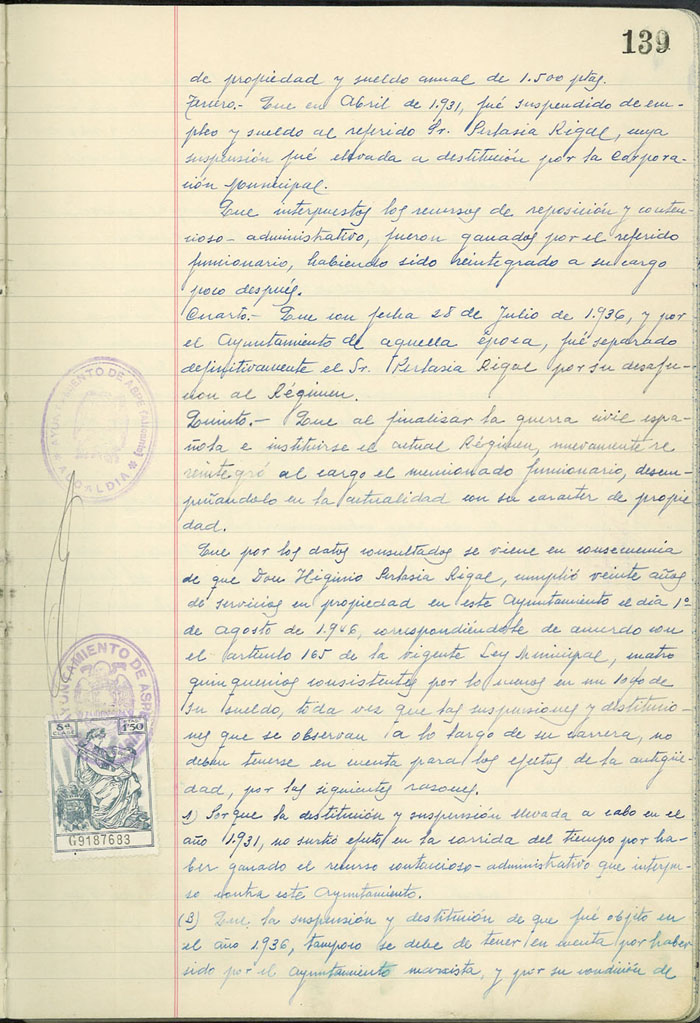 139
de propiedad y sueldo anual de 1.500 ptas.
Tercero.- Que en Abril de 1.931, fué suspendido de em-
pleo y sueldo al referido Sr. Pertasia Rigal, cuya
suspensión fué elevada a destitución por la Corpora-
ción Municipal.
Que interpuestos los recursos de reposición y conten-
cioso-administrativo, fueron ganados por el referido
funcionario, habiendo sido reintegrado a su cargo
poco después.
Cuarto.- Que con fecha 28 de Julio de 1.936, y por
el Ayuntamiento de aquella época, fué separado
definitivamente el Sr. Pertasia Rigal por su desafec-
cion al Régimen.
Quinto.- Que al finalisar la guerra civil espa-
ñola e instituirse el actual Régimen, nuevamente se
reintegró al cargo el mencionado funcionario, desem-
peñandolo en la actualidad con su caracter de propie-
dad.
Que por los datos consultados se viene en consecuencia
de que Don Higinio Pertasia Rigal, cumplió veinte años
de servicios en propiedad en este Ayuntamiento el dia 1º
de Agosto de 1.946, correspondiéndole de acuerdo con
el artículo 165 de la vigente Ley Municipal, cuatro
quinquenios consistentes por lo menos en un 10% de
su sueldo, toda vez que las suspensiones y destitucio-
nes que se observan a lo largo de su carrera, no
deben tenerse en cuenta para los efectos de la antigüe-
dad, por las siguientes razones.
A) Porque la destitución y suspensión llevada a cabo en el
año 1.931, no surtió efecto en la corrida del tiempo por ha-
ber ganado el recurso contencioso-administrativo que interpu-
so contra este Ayuntamiento.
(B) Que la suspensión y destitución de que fué objeto en
el año 1.936, tampoco se debe de tener en cuenta por haber
sido por el Ayuntamiento marxista, y por su condición de
AYUNTAMIENTO DE ASPE (Alicante)
ALCALDIA
AYUNTAMIENTO DE ASPE
8ª CLASE
1'50
G9187683